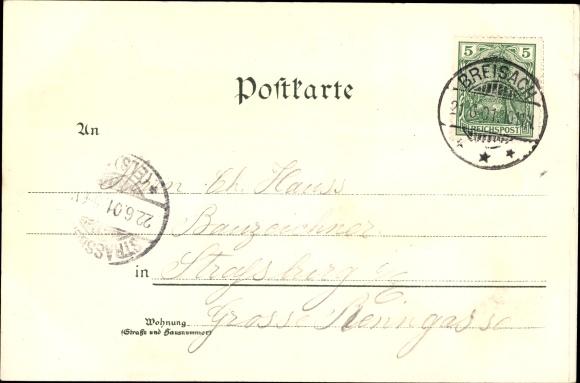 5 5
BREISACH
REICHSPOST
Postkarte
An
Ch. Hauss
STRASSB (ELS)
22.6.01
Bauzeichner
in Strassburg i/E
Wohnung
(Straße und Hausnummer)
Grosse Renngasse